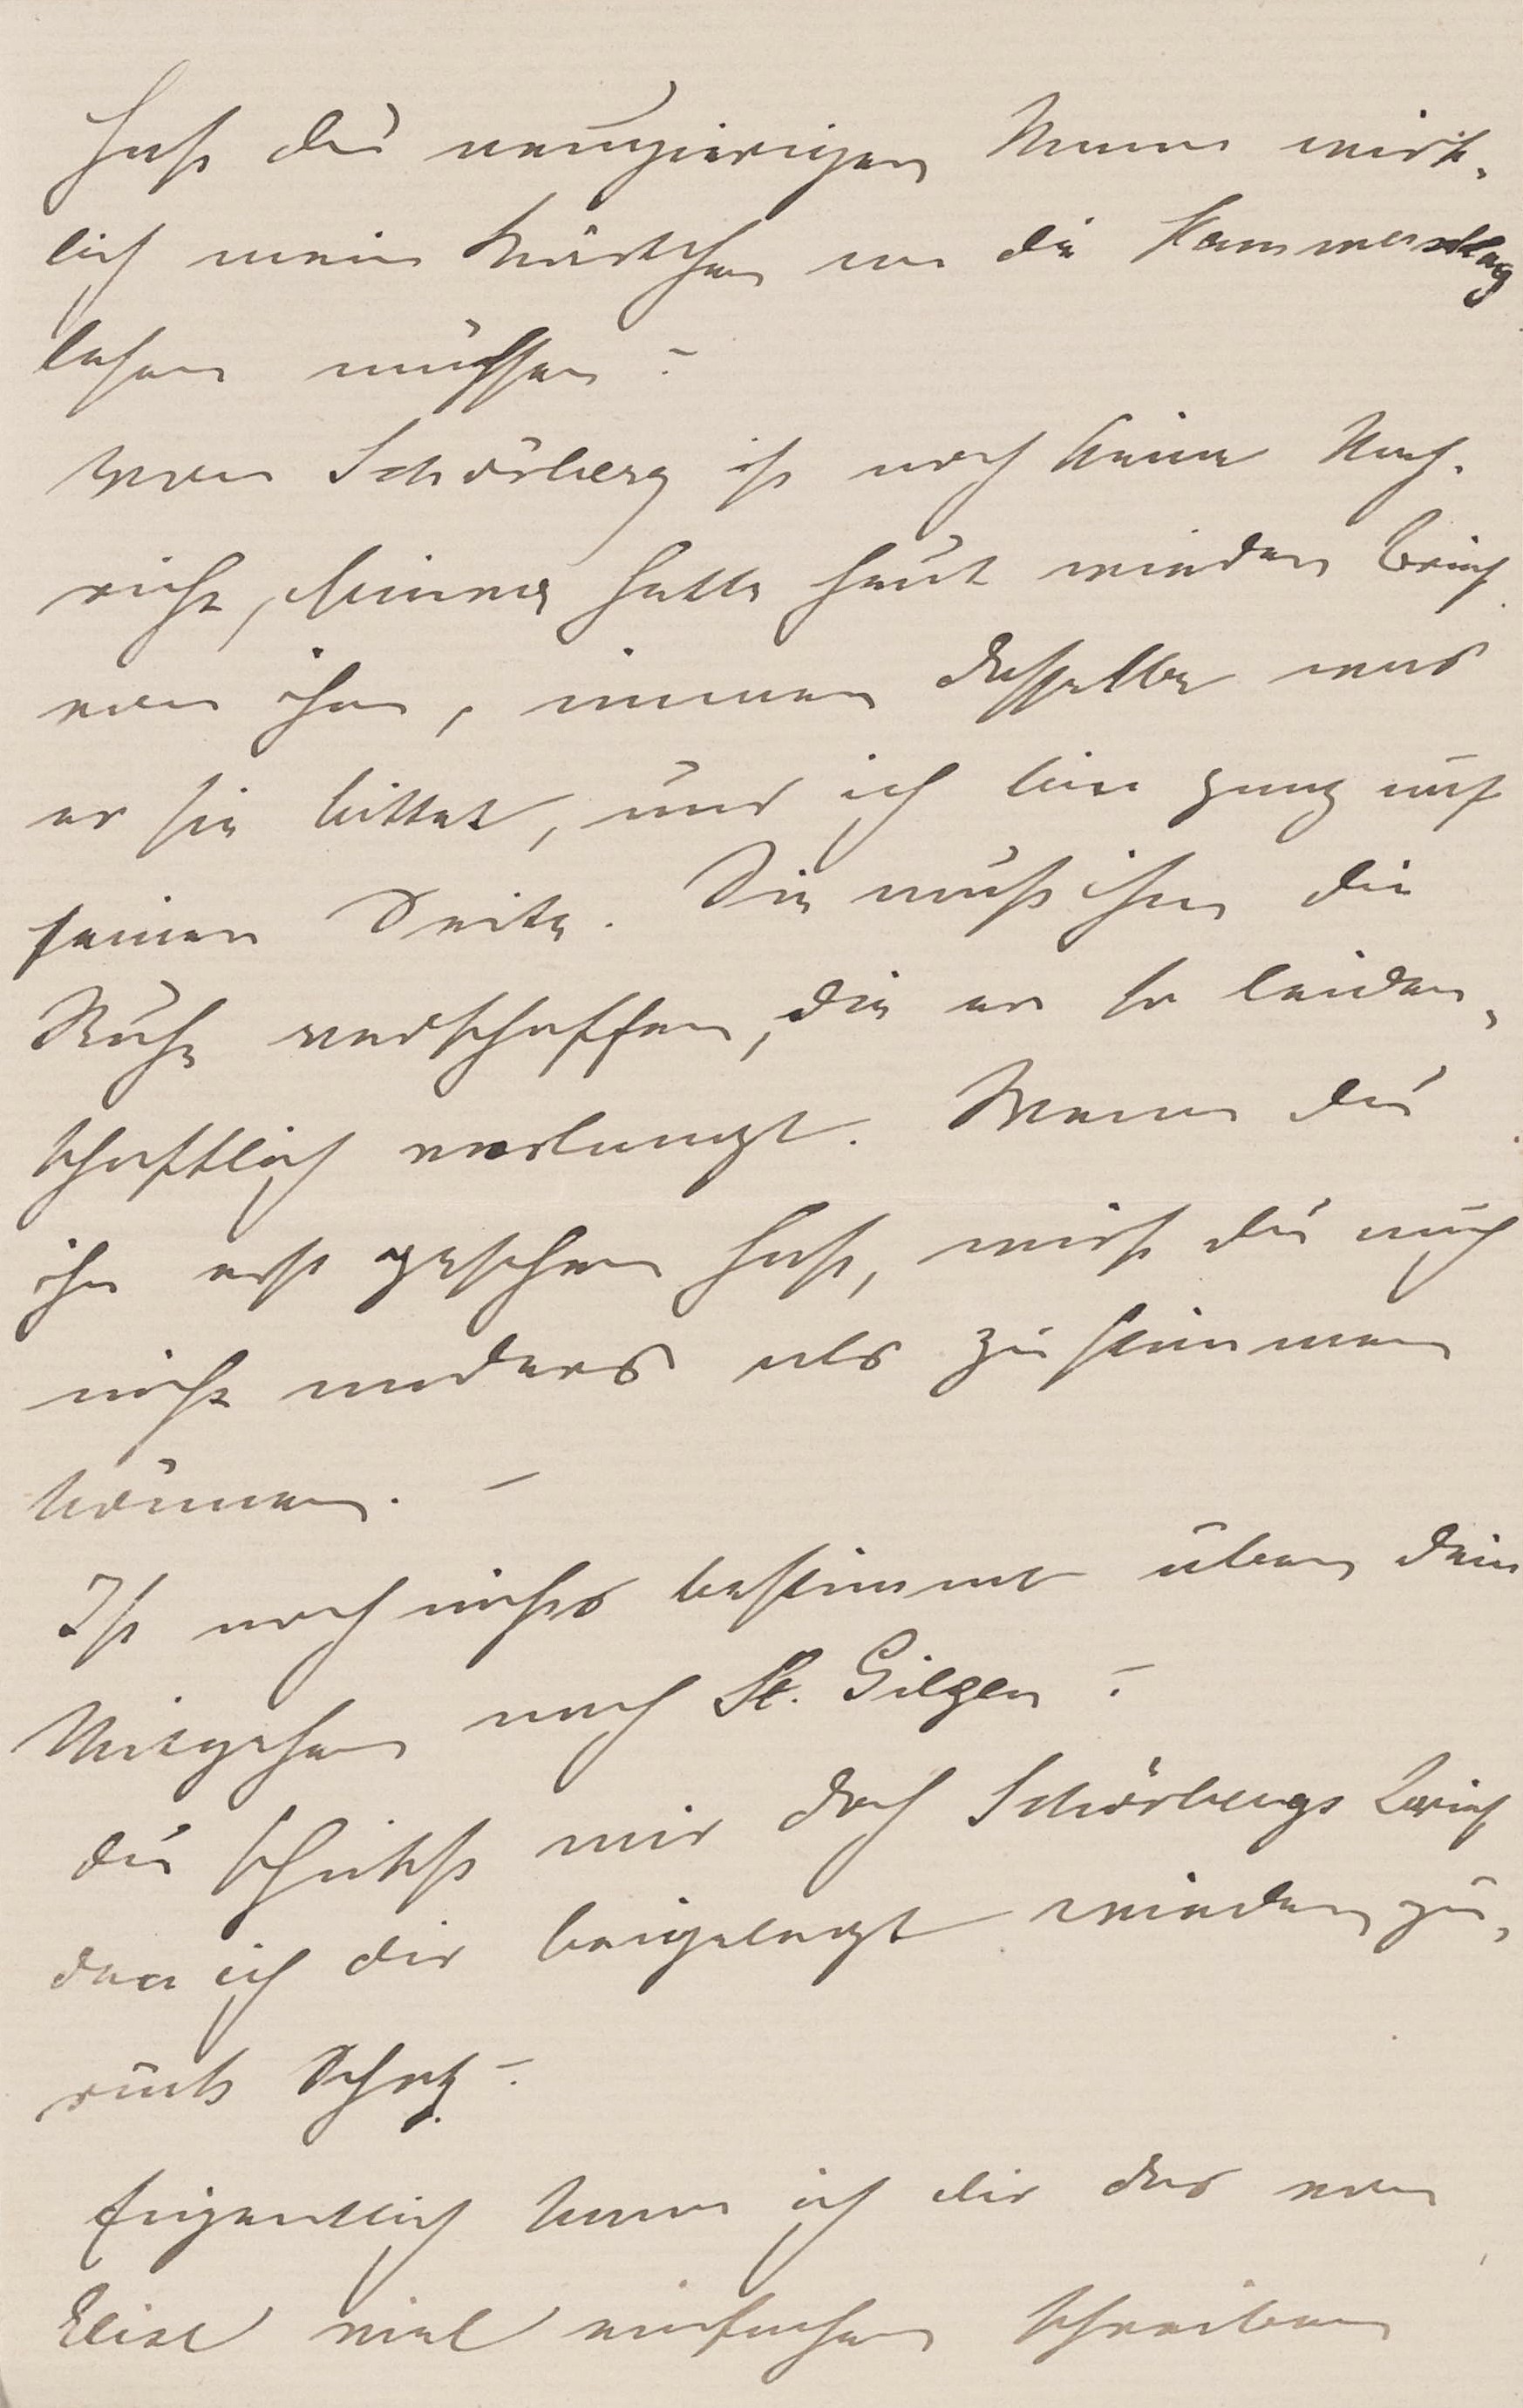 Hast du neugieriger Mann wirk-
lich mein Kärtchen an die Kammerschlag
lesen müssen?
Von Schörberg ist noch keine Nach-
richt, Minna hatte heut wieder Brief
von ihm, immer dasselbe was
er sie bittet, und ich bin ganz auf
seiner Seite. Sie muß ihm die
Ruhe verschaffen, die er so leiden-
schaftlich verlangt. Wenn du
ihn erst gesehen hast, wirst du auch
nicht anders als zustimmen
können. –
Ist noch nichts bestimmt über dein
Mitgehen nach St. Gilgen?
du schickst mir doch Schörbergs Brief
den ich dir beigelegt wieder zu-
rück Schatz?
Eigentlich kann ich dir das von
Elise viel einfacher schreiben